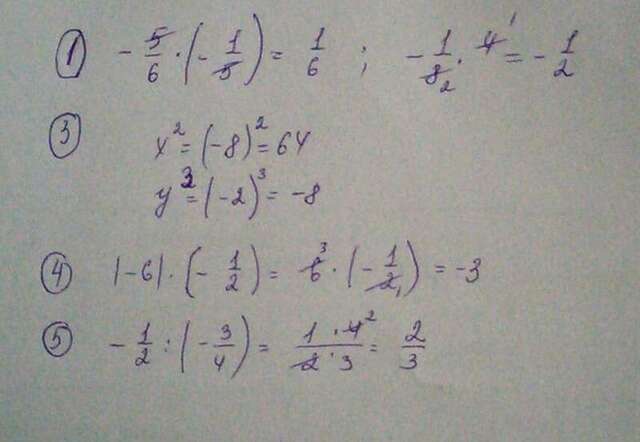 ① -5/6 · (-1/5) = 1/6 ; -1/8₂ · 4¹ = -1/2
③ x² = (-8)² = 64
y³ = (-2)³ = -8
④ |-6| · (-1/2) = 6³ · (-1/2₁) = -3
⑤ -1/2 : (-3/4) = (1 · 4²)/(2 · 3) = 2/3